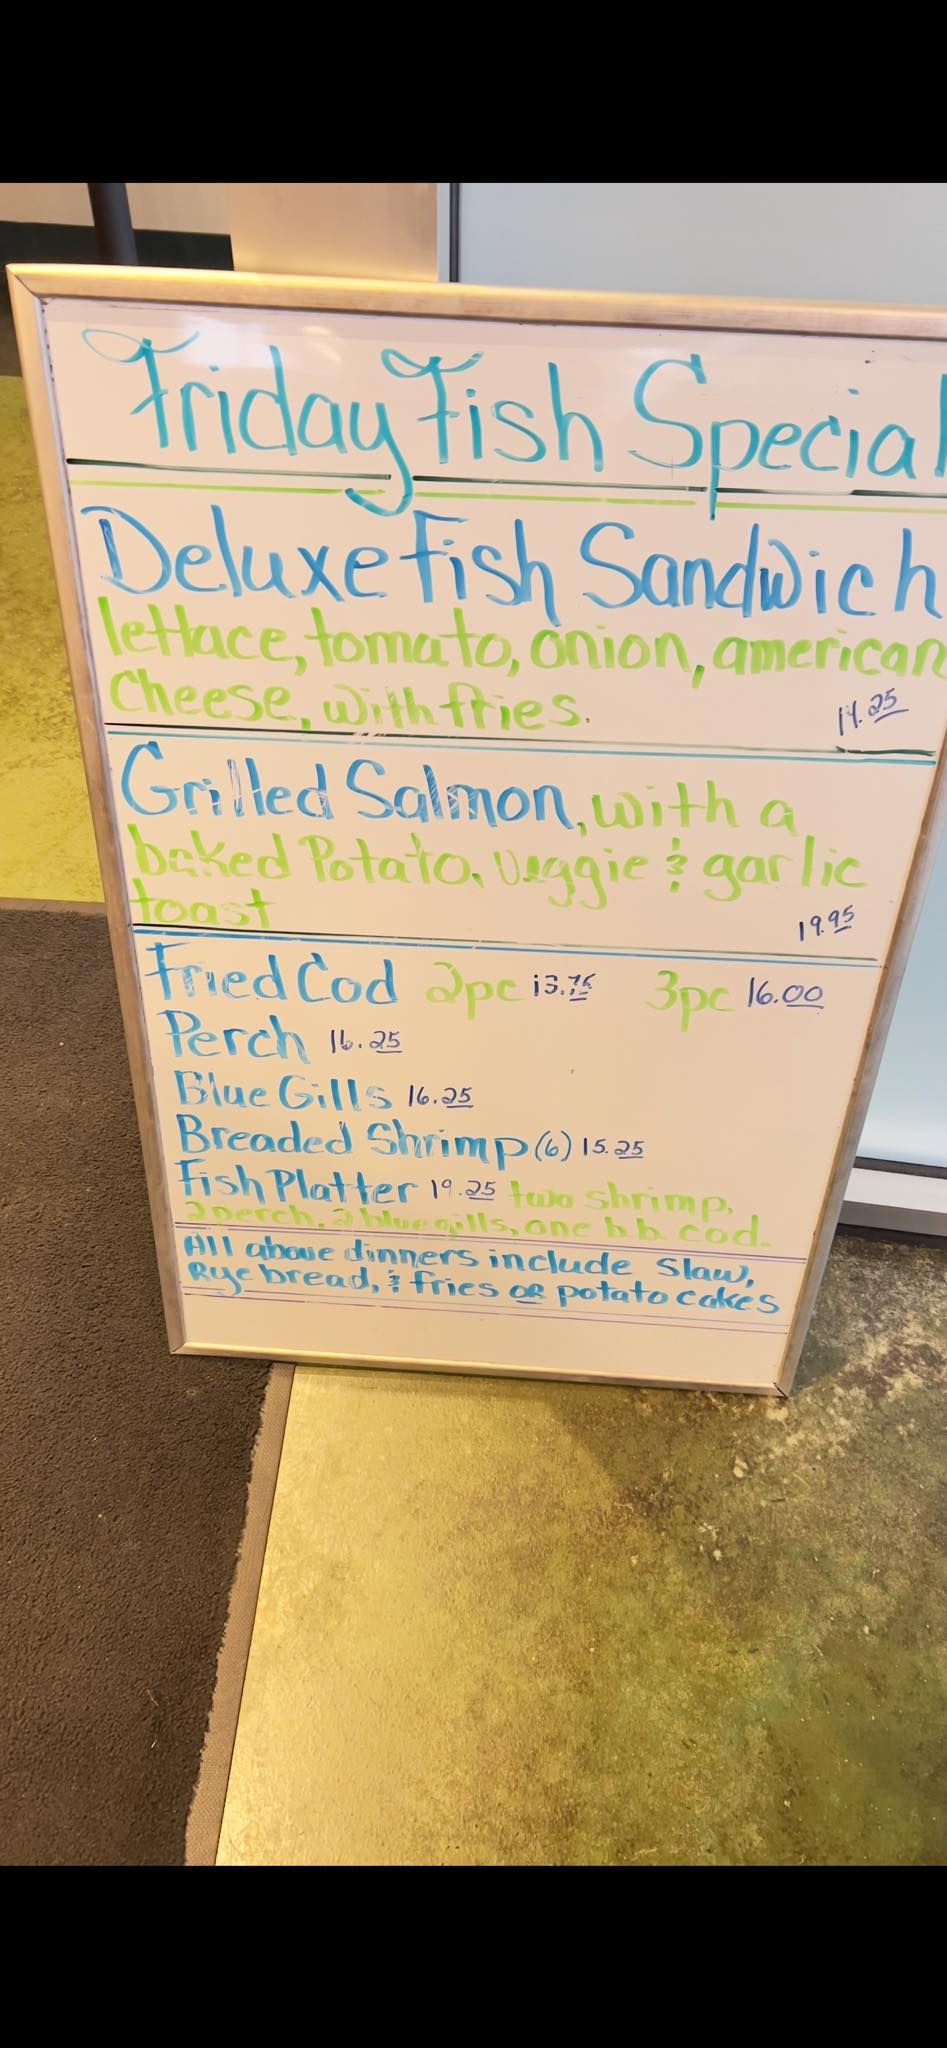 Friday Fish Special
Deluxe Fish Sandwich
lettace, tomato, onion, american
Cheese, with fries. 14.25
Grilled Salmon, with a
baked Potato, Veggie & garlic
toast 19.95
Fried Cod 2pc 13.75 3pc 16.00
Perch 16.25
Blue Gills 16.25
Breaded Shrimp (6) 15.25
Fish Platter 19.25 two shrimp,
2 perch, 2 blue gills, one b.b. cod.
All above dinners include Slaw,
Rye bread, & fries OR potato cakes